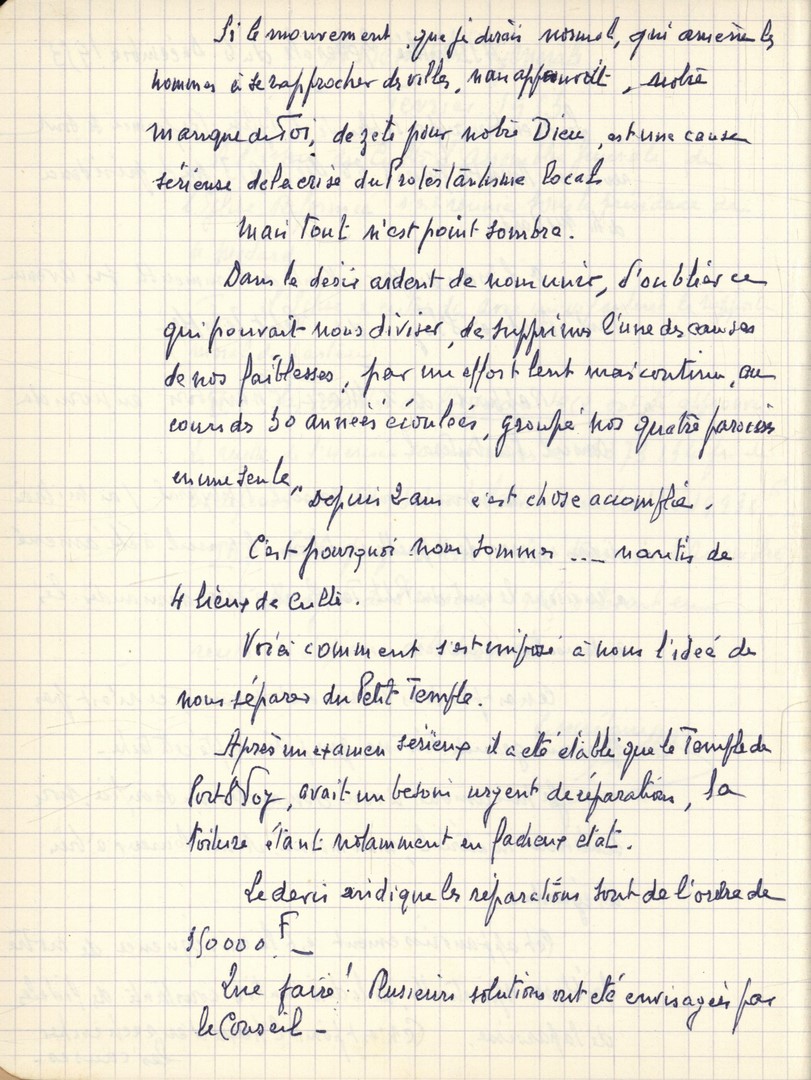 Si le mouvement, que je dirais normal, qui amène les
hommes à se rapprocher des villes, nous appauvrit, notre
manque de Foi, de zèle pour notre Dieu, est une cause
sérieuse de la crise du Protestantisme local
Mais tout n'est point sombre.
Dans le désir ardent de nous unir, d'oublier ce
qui pouvait nous diviser, de supprimer l'une des causes
de nos faiblesses, par un effort lent mais continu, au
cours des 30 années écoulées, groupé nos quatre paroisses
en une seule. Depuis 2 ans c'est chose accomplie.
C'est pourquoi nous sommes ... nantis de
4 lieux de Culte.
Voici comment s'est imposé à nous l'idée de
nous séparer du Petit Temple.
Après un examen sérieux il a été établi que le Temple de
Port Ste Foy, avait un besoin urgent de réparation, sa
toiture étant notamment en facheux état.
Le devis indique les réparations sont de l'ordre de
150000 F _
Que faire! Plusieurs solutions ont été envisagées par
le Conseil -